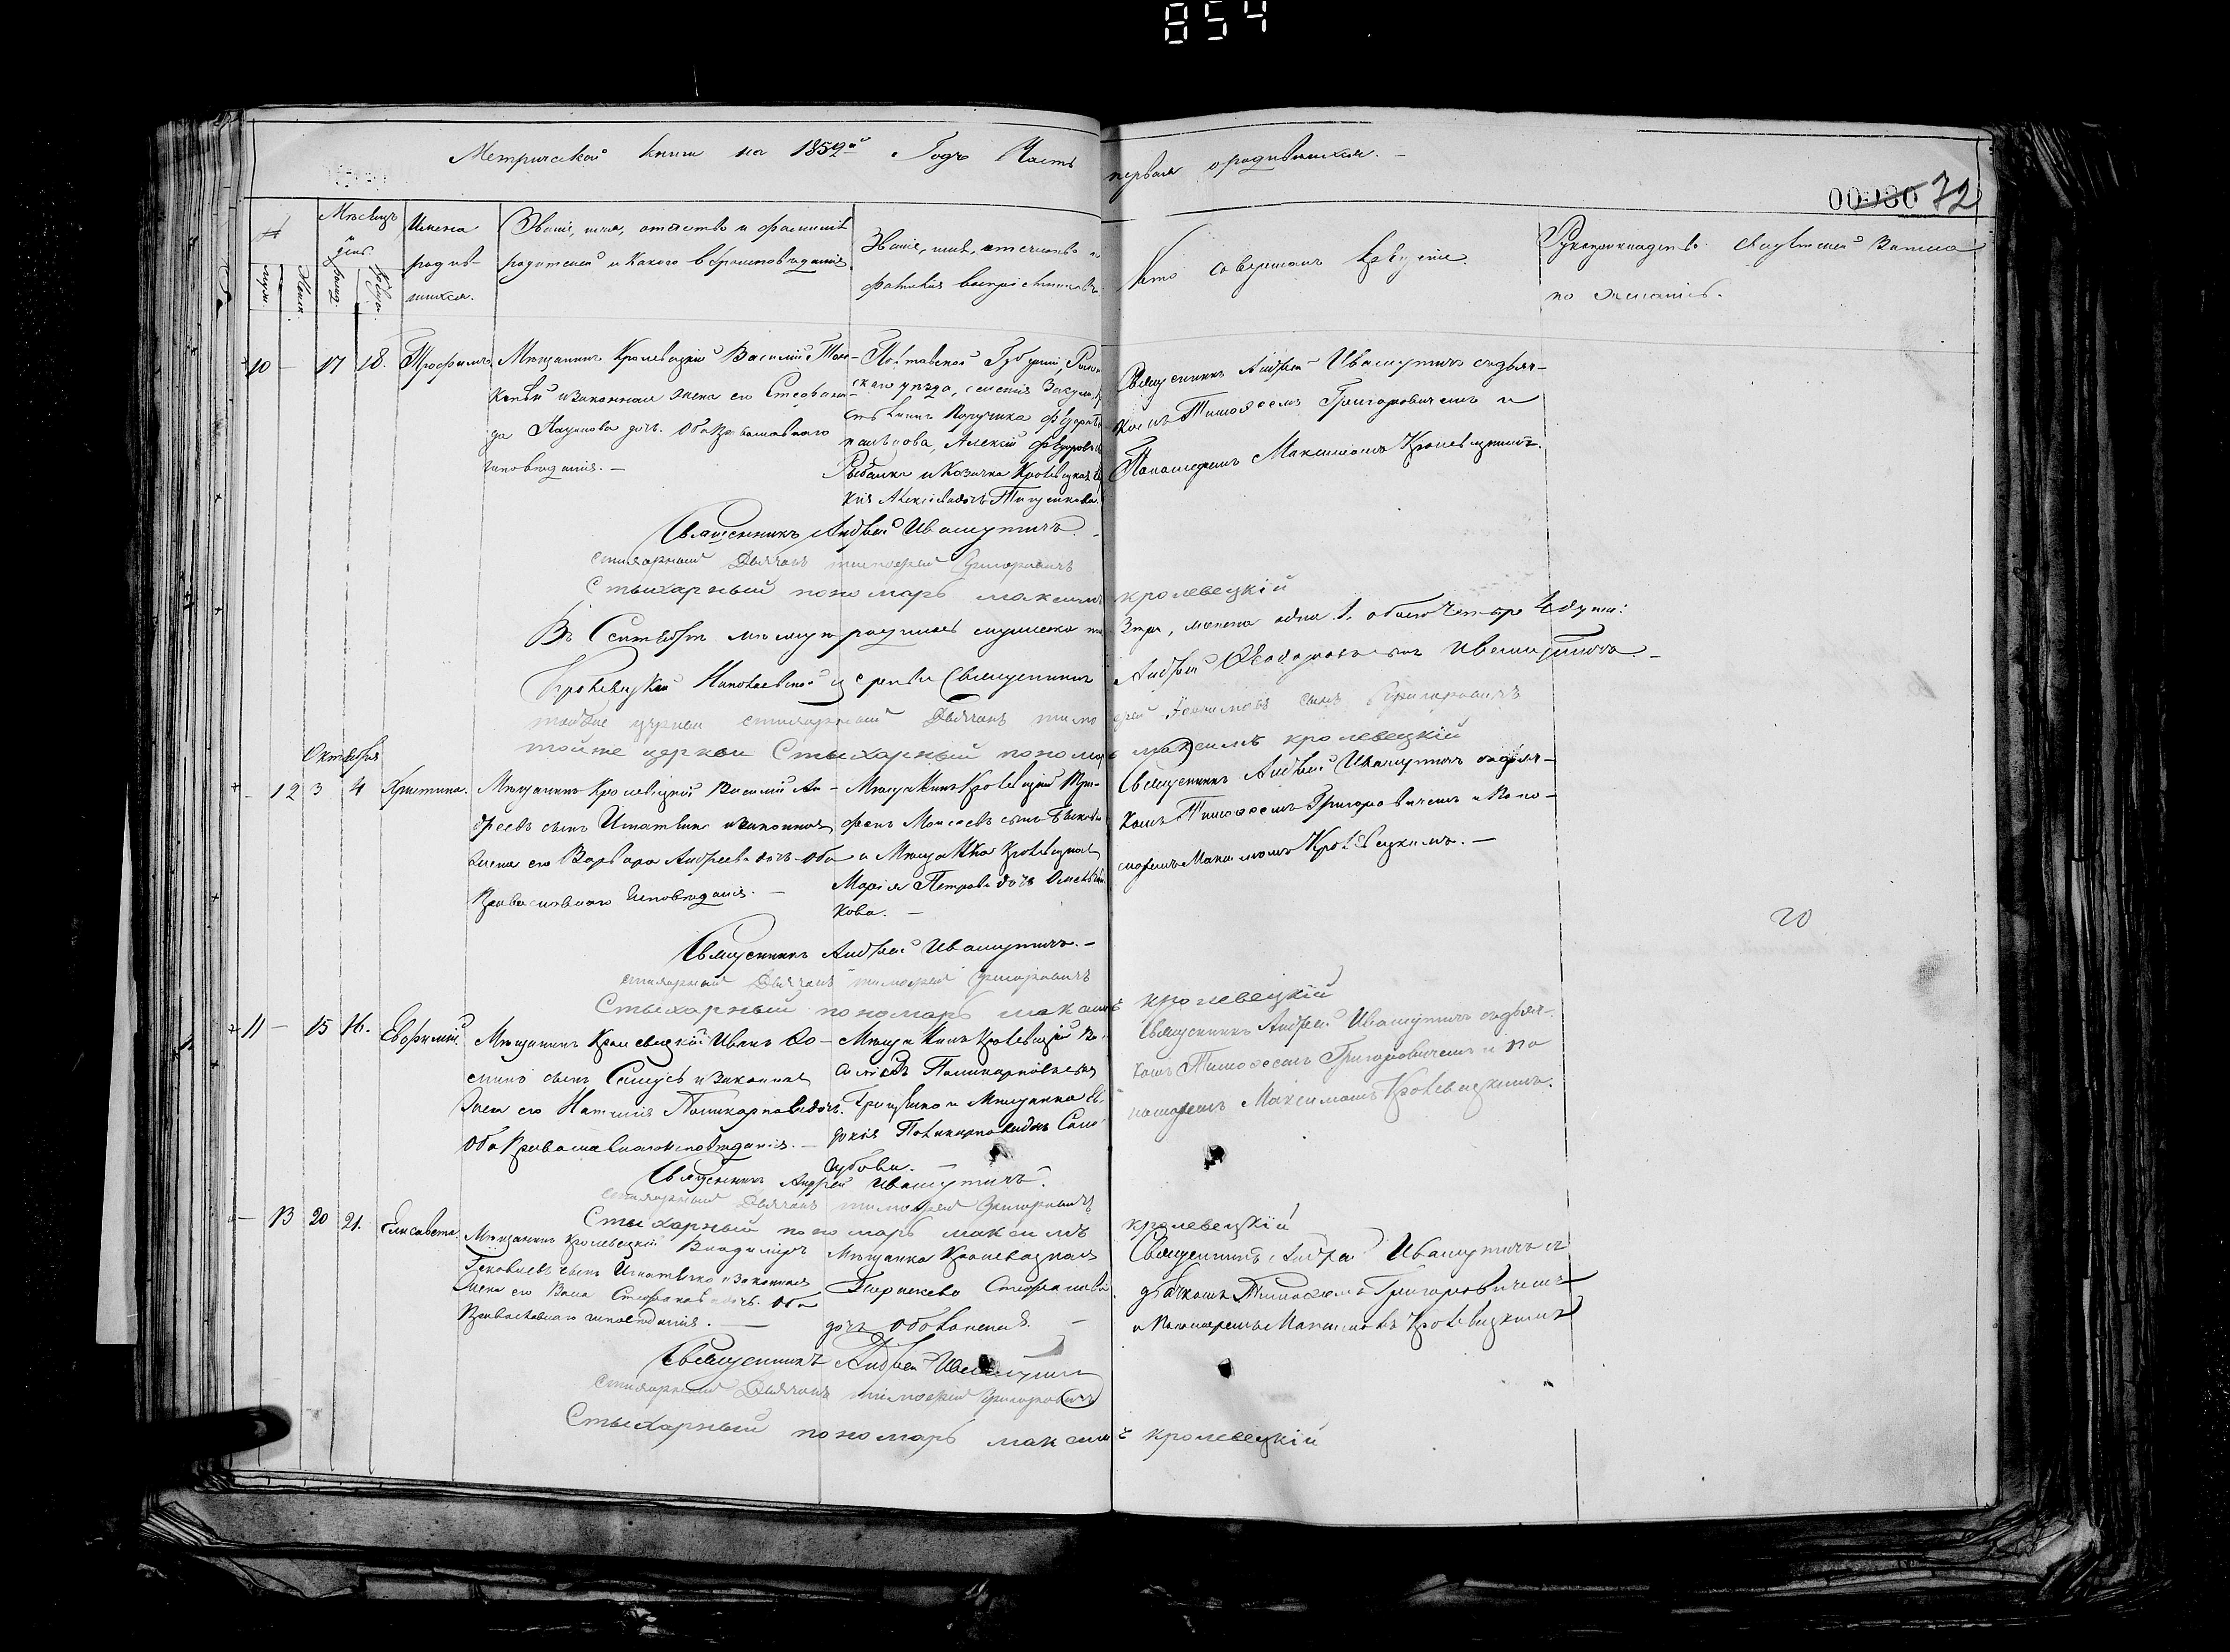 854
Метрической книги на 1859й Годъ Часть первая о родившихся. —
00080 72
Мѣсяцъ и день.
Имена родив- шихся.
Званіе, имя, отчество и фамилія родителей и какого вѣроисповѣданія
Званіе, имя, отчество и фамилія воспріемниковъ.
Кто совершалъ крещеніе.
Рукоприкладство свидѣтелей записи по желанію.
10 — 17 18. Трофимъ.
Мѣщанинъ Кролевецкій Василій
и законная жена его Стефани-
да дочь. Оба православнаго
исповѣданія. —
Полтавской Губерніи,
скаго уѣзда,
Поручика
Алексій Ѳедоровъ
Рыбалка и Козачка Кролевецкая
кія Алексѣева дочь
Священникъ Андрей Ивашутичъ съ дьяч-
комъ Тимоѳеемъ Григоровичемъ и
Пономаремъ Максимомъ Кролевецкимъ.
Священникъ Андрей Ивашутичъ. —
стихарный Дьячокъ тимоѳей Григоровичъ
Стыхарный пономарь максимъ кролевецкій
Въ Сентябрѣ мѣсяцѣ родилось мужеска три, женска одна 1. обоего четыре 4 души:
Кролевецкой Николаевской церкви Священникъ Андрей Ивашутичъ. —
тойже церкви стихарный Дьячокъ тимоѳей сынъ Григоровичъ
тойже церкви Стыхарный пономарь максимъ кролевецкій
Октября
— 12 3 4 Христина.
Мѣщанинъ Кролевецкій Василій Ан-
дреевъ сынъ Игнатенко и законная
жена его Варвара Андреева дочь оба
Православнаго исповѣданія. —
Мѣщанинъ Кролевецкій Три-
фонъ Моисеевъ сынъ
и Мѣщанка Кролевецкая
Марія Петрова дочь
кова. —
Священникъ Андрей Ивашутичъ съ дьяч-
комъ Тимоѳеемъ Григоровичемъ и Поно-
маремъ Максимомъ Кролевецкимъ. —
20
Священникъ Андрей Ивашутичъ. —
стихарный Дьячокъ тимоѳей Григоровичъ
Стыхарный пономарь максимъ кролевецкій
11 — 15 16. Евфимій.
Мѣщанинъ Кролевецкій Иванъ
сынъ и законная
жена его Наталія Поликарпова дочь.
Оба Православнаго исповѣданія. —
Мѣщанинъ Кролевецкій Ва-
силій Поликарповъ сынъ
Грищенко и Мѣщанка Ев-
докія Поликарпова дочь
Священникъ Андрей Ивашутичъ съ дьяч-
комъ Тимоѳеемъ Григоровичемъ и По-
номаремъ Максимомъ Кролевецкимъ.
Священникъ Андрей Ивашутичъ.
стихарный Дьячокъ тимоѳей Григоровичъ
Стыхарный пономарь максимъ кролевецкій
— 13 20 21. Елисавета.
Мѣщанинъ Кролевецкій Владиміръ
Яковлевъ сынъ Игнатенко и законная
жена его Стефанова дочь. Оба
Православнаго исповѣданія. —
Мѣщанка Кролевецкая
Стефанова
дочь —
Священникъ Андрей Ивашутичъ съ
дьячкомъ Тимоѳеемъ Григоровичемъ
и Пономаремъ Максимомъ Кролевецкимъ
Священникъ Андрей Ивашутичъ
стихарный Дьячокъ тимоѳей Григоровичъ
Стыхарный пономарь максимъ кролевецкій